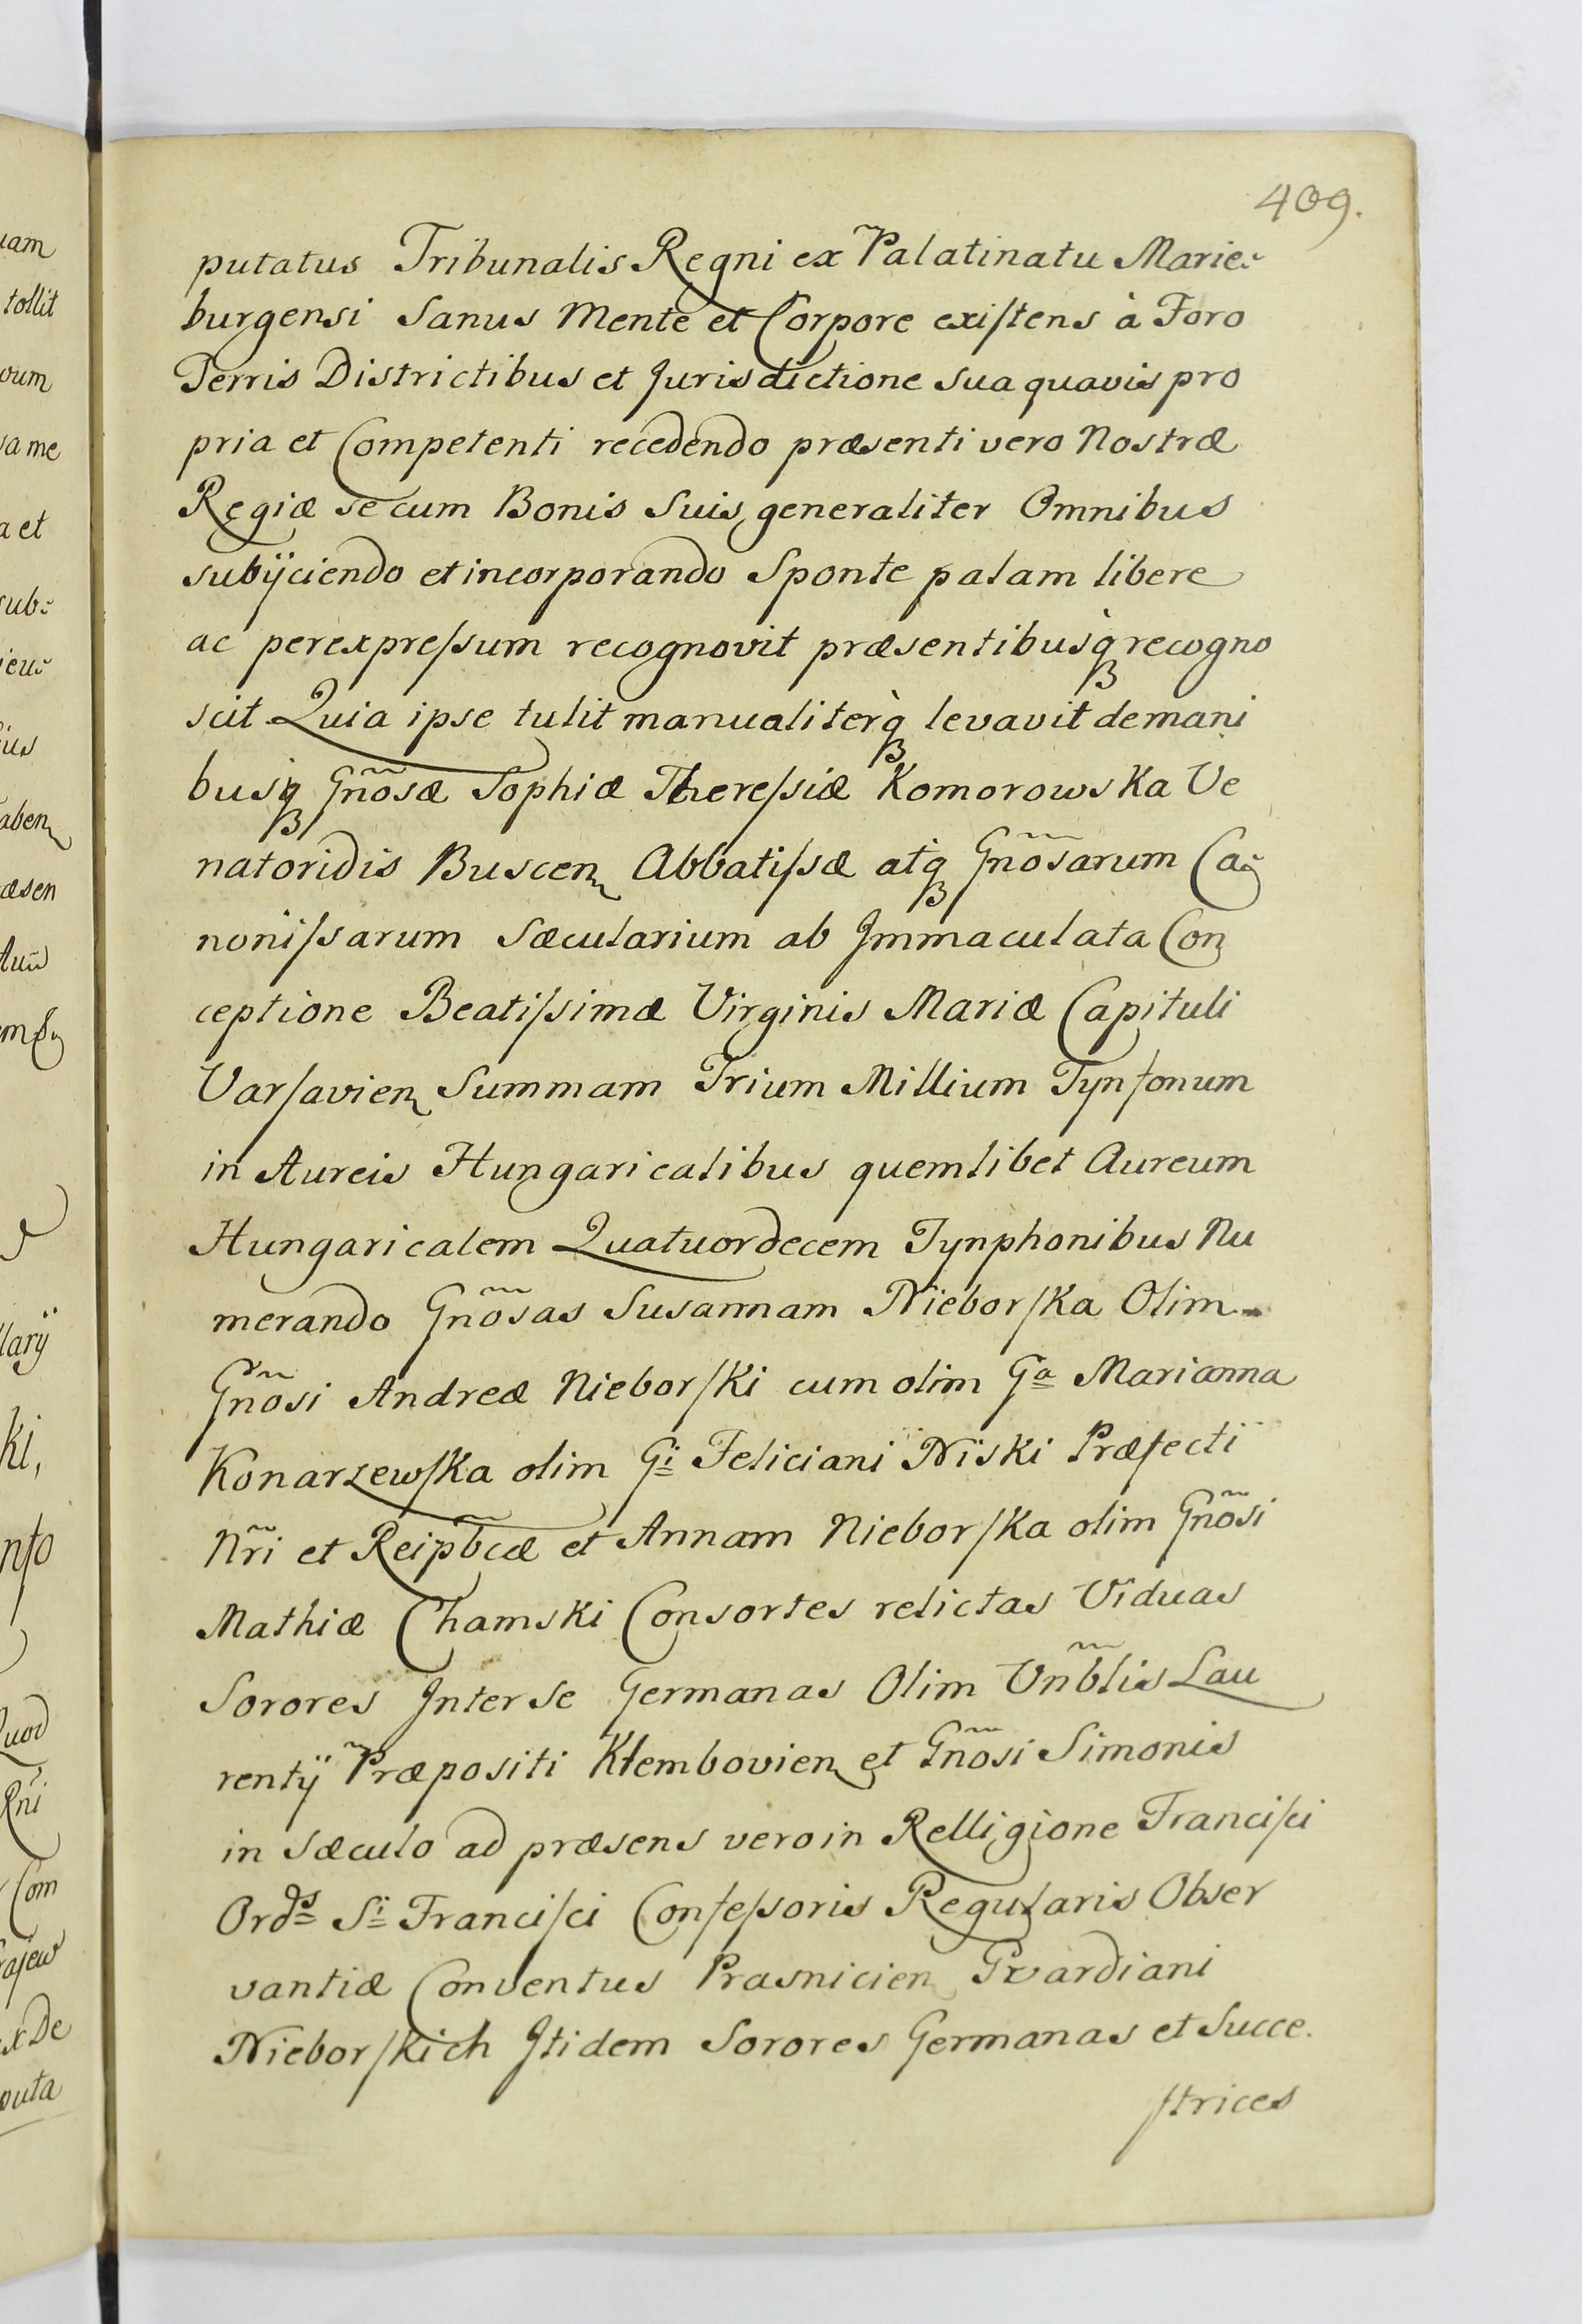 409.
putatus Tribunalis Regni ex Palatinatu Marie-
burgensi Sanus Mente et Corpore exiſtens à Foro
Terris Districtibus et Jurisdictione sua quavis pro
pria et Competenti recedendo præsenti vero Nostræ
Regiæ se cum Bonis Suis generaliter Omnibus
subÿciendo et incorporando Sponte palam libere
ac perexpreſsum recognovit præsentibusq́ꝫ recogno
scit Quia ipse tulit manualiterq́ꝫ levavit de mani
busqꝫ Gnõsæ Sophiæ Thereſsiæ Komorowska Ve
natoridis Buscen Abbatiſsæ atqꝫ Gnõsarum Ca-
noniſsarum Sæcularium ab Immaculata Con
ceptione Beatiſsimæ Virginis Mariæ Capituli
Varſavien Summam Trium Millium Tynfonum
in Aureis Hungaricalibus quemlibet Aureum
Hungaricalem Quatuordecem Tynphonibus Nu
merando Gnõsas Susannam Nieborſka Olim
Gnõsi Andreæ Nieborſki cum olim Gª Marianna
Konarzewſka olim Gⁱ Feliciani Niski Præfecti
Nr̃i et Reipb̃cæ et Annam Nieborſka olim Gnõsi
Mathiæ Chamski Consortes relictas Viduas
Sorores Inter Se Germanas Olim Vñblis Lau
rentÿ Præpositi Kłembovien et Gnõsi Simonis
in Sæculo ad præsens vero in Relligione Franciſci
Ordˢ Sⁱ Franciſci Confeſsoris Regularis Obser
vantiæ Conventus Prasnicien Gvardiani
Nieborſkich Itidem Sorores Germanas et Succe.
ſtrices
uam
tollit
a et
sub-
aben
æsen
larÿ
ki,
Quod
Com
ex De
puta